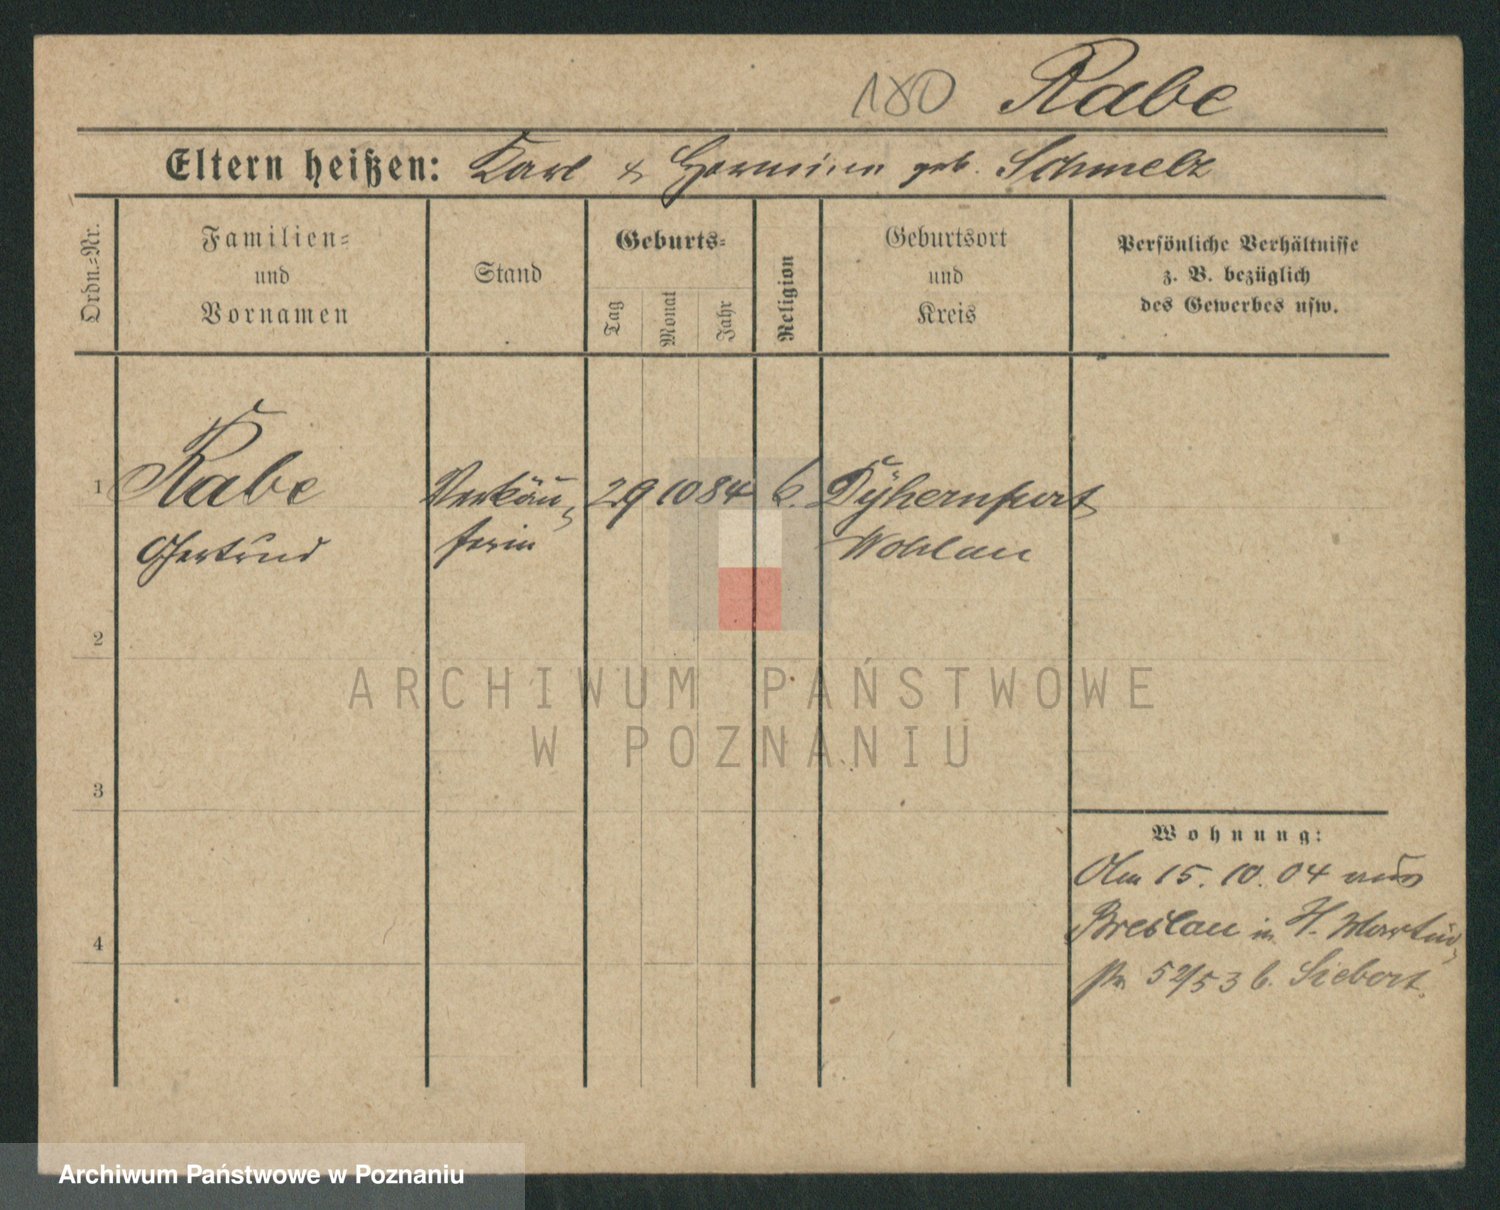 180 Rabe
Eltern heißen: Karl & Hermine geb. Schmelz
Ordn.-Nr.
Familien-
und
Vornamen
Stand
Geburts-
Tag
Monat
Jahr
Religion
Geburtsort
und
Kreis
Persönliche Verhältnisse
z. B. bezüglich
des Gewerbes usw.
1 Rabe Verkäu- 29 10 84 Dyhernfurt
Gertrud ferin Wohlau
2
3
4
Wohnung:
Am 15. 10. 04 aus
Breslau in H. Martin-
str 52/53 b. Siebert.
ARCHIWUM PAŃSTWOWE
W POZNANIU
Archiwum Państwowe w Poznaniu